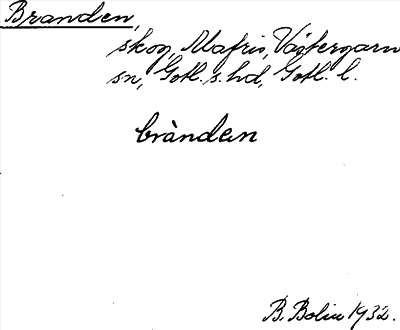 Branden,
skog, Mafrids, Västergarn
sn, Gotl. s. hd, Gotl. l.
bràndæn
B. Bolin 1932.